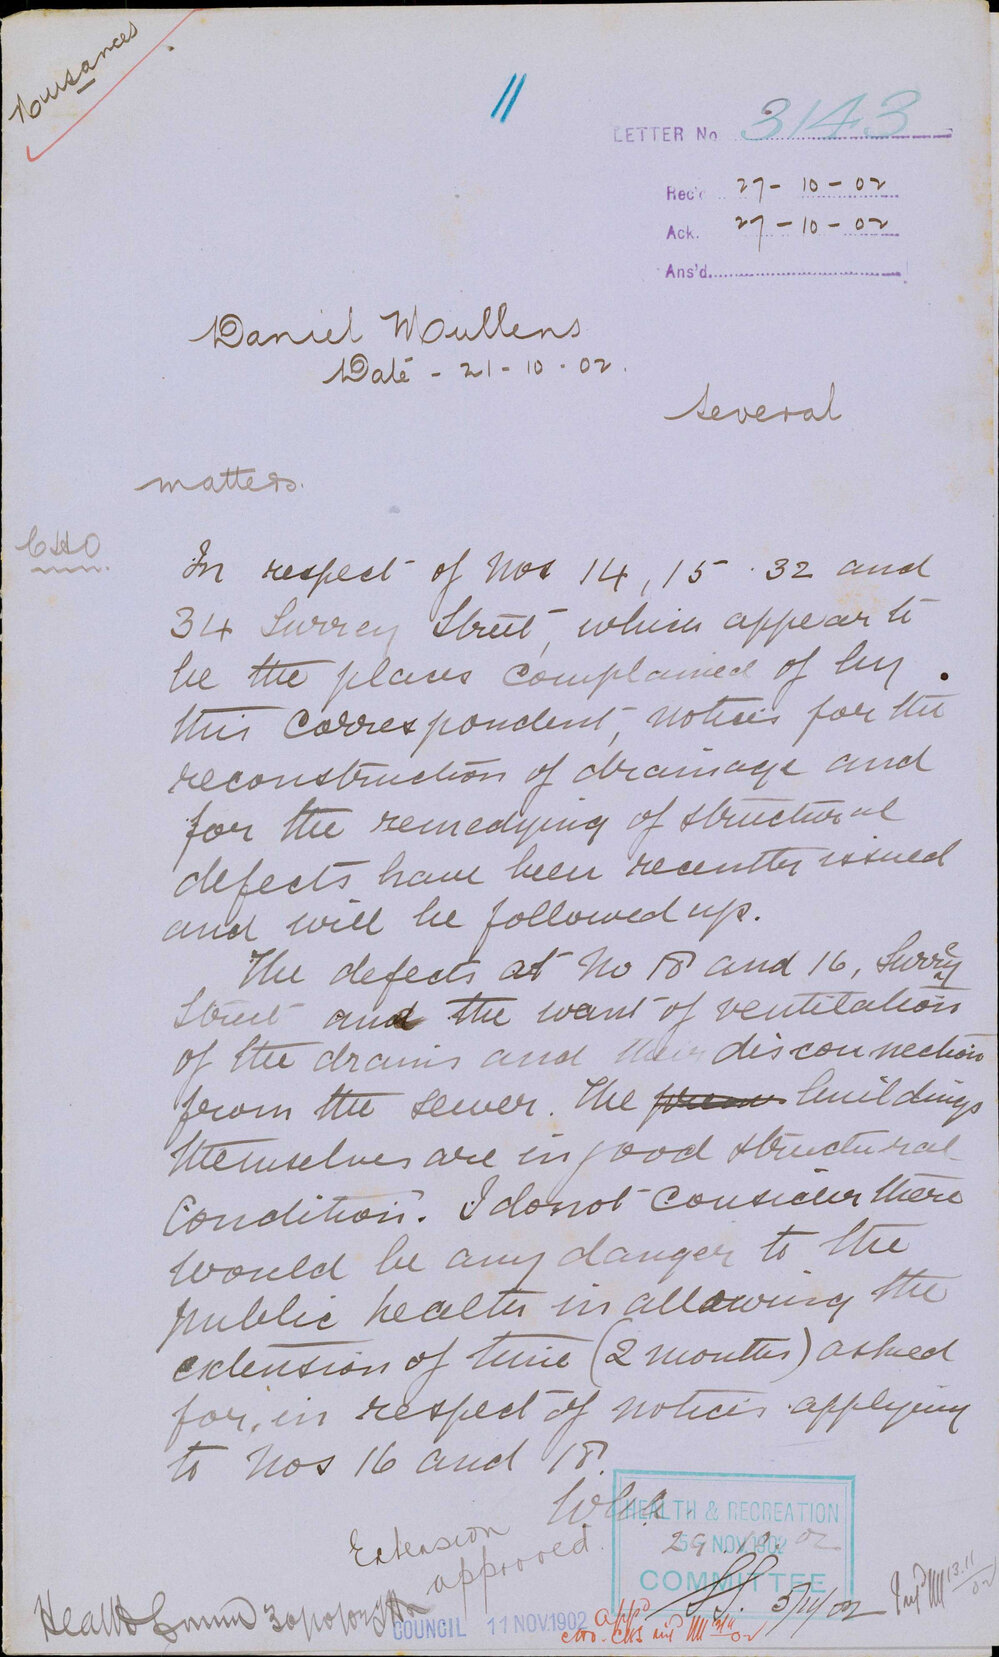 Nuisances
11
LETTER No 3143
Rec'd 27-10-02
Ack. 27-10-02
Ans'd.
Daniel Mullens
Date - 21-10-02.
Several
matters.
CHO
In respect of Nos 14, 15 . 32 and
34 Surrey Street, which appear to
be the places complained of by
this correspondent, notices for the
reconstruction of drainage and
for the remedying of structural
defects have been recently issued
and will be followed up.
The defects at No 18 and 16, Surrey
Street and the want of ventilation
of the drains and their disconnection
from the sewer. The buildings
themselves are in good structural
Condition. I do not consider there
would be any danger to the
public health in allowing the
extension of time (2 months) asked
for, in respect of notices applying
to Nos 16 and 18.
HEALTH & RECREATION
29.10.02
5 NOV 1902
COMMITTEE
Extension
approved
Health Comm 30/10/02
COUNCIL 11 NOV. 1902
appd
5/11/02
13.11
02